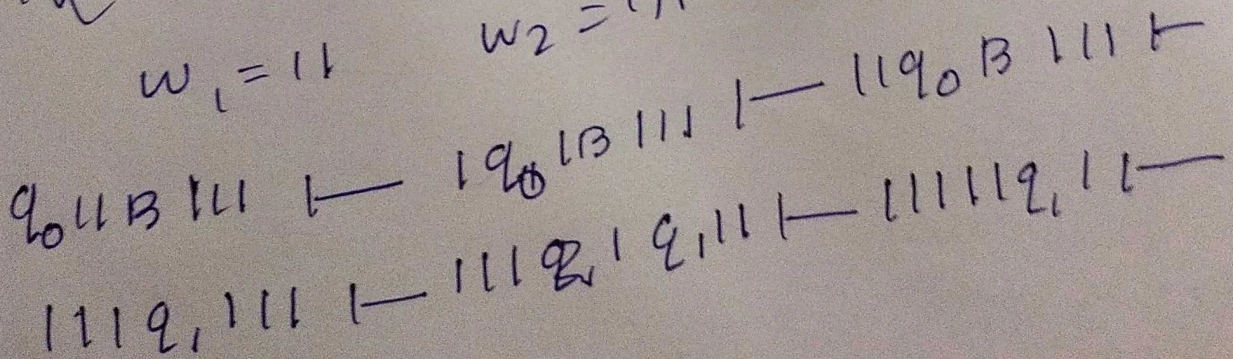 w₁ = 11 w₂ =
q₀11B111 ⊢ 1q₀1B111 ⊢ 11q₀B111 ⊢
111q₁111 ⊢ 1111q₁11 ⊢ 11111q₁1 ⊢